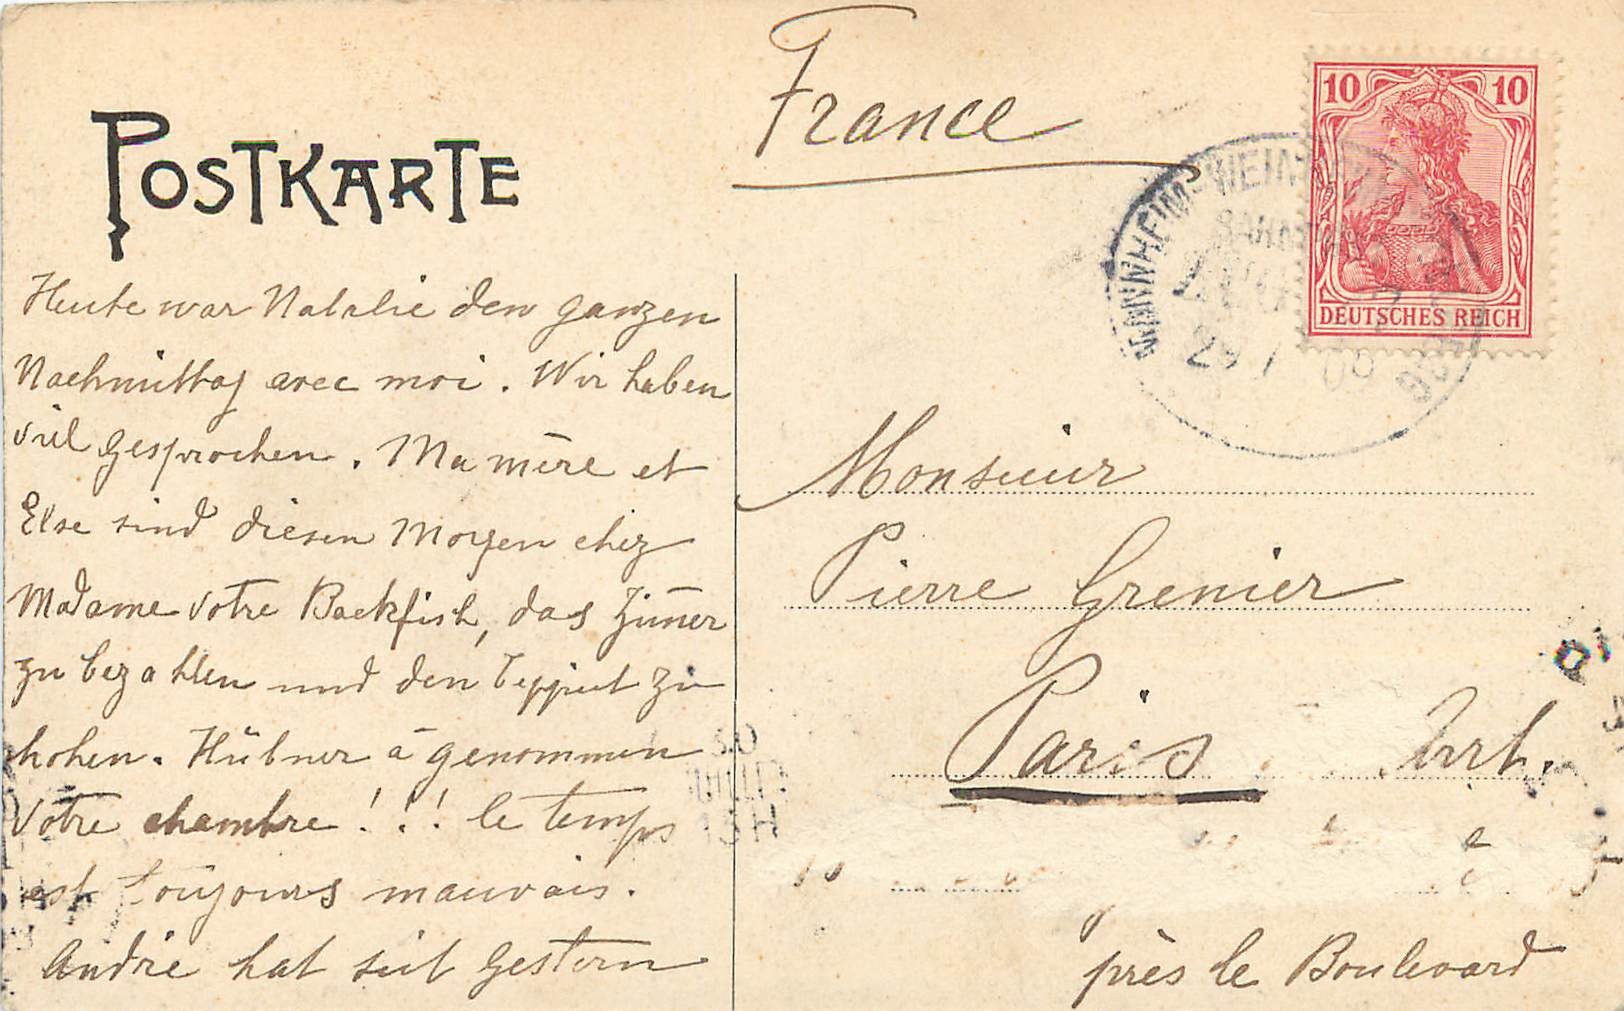 France
POSTKARTE
10 10
DEUTSCHES REICH
MANNHEIM-WEINH
Heute war Natalie den ganzen
Nachmittag avec moi. Wir haben
viel gesprochen. Ma mère et
Else sind diesen Morgen chez
Madame votre Backfish, das Zim̄er
zu bezahlen und den Teppich zu
hohen. Hübner a genommen
votre chambre!!! le temps
est toujours mauvais.
Andrée hat seit gestern
Monsieur
Pierre Grenier
Paris
30
JUILLET
13H
près le Boulevard